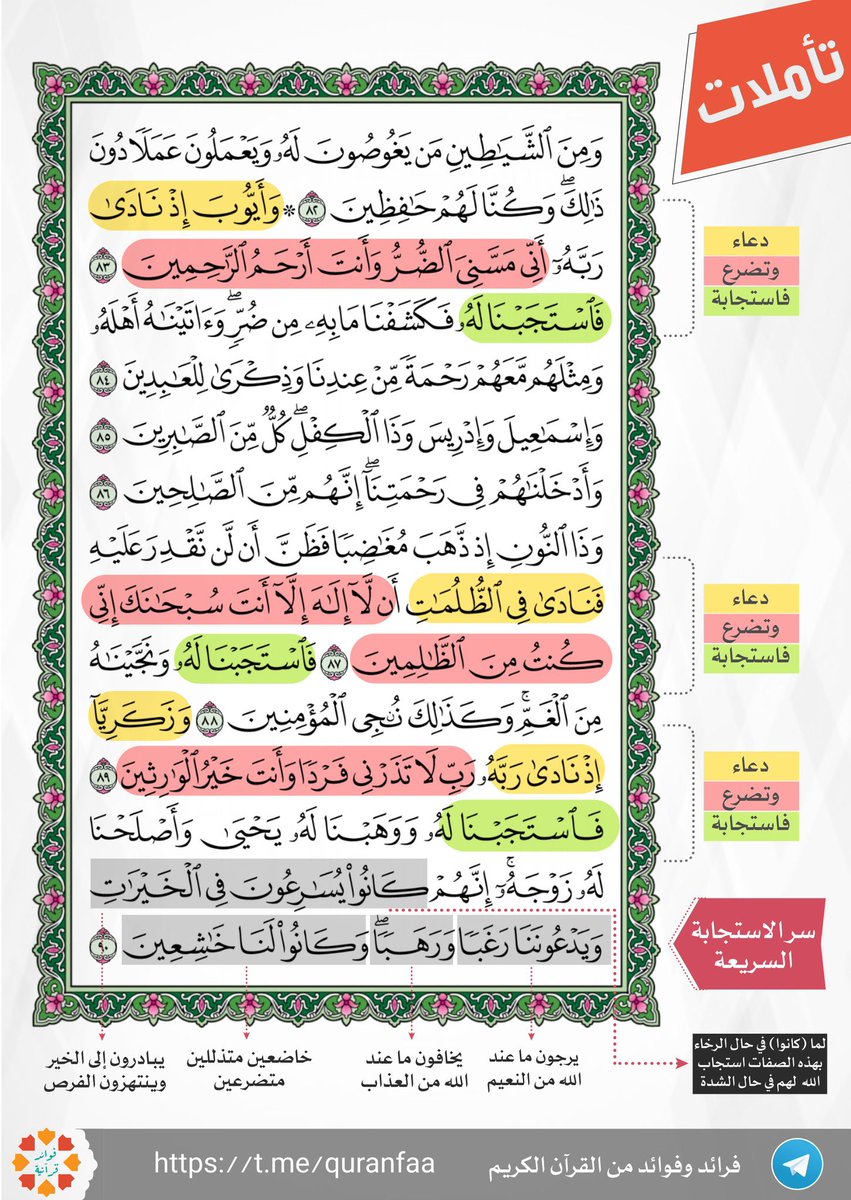 تأملات
وَمِنَ ٱلشَّيَٰطِينِ مَن يَغُوصُونَ لَهُۥ وَيَعْمَلُونَ عَمَلًا دُونَ
ذَٰلِكَۖ وَكُنَّا لَهُمْ حَٰفِظِينَ ٨٢ ۞ وَأَيُّوبَ إِذْ نَادَىٰ
رَبَّهُۥٓ أَنِّي مَسَّنِيَ ٱلضُّرُّ وَأَنتَ أَرْحَمُ ٱلرَّٰحِمِينَ ٨٣
فَٱسْتَجَبْنَا لَهُۥ فَكَشَفْنَا مَا بِهِۦ مِن ضُرٍّۖ وَءَاتَيْنَٰهُ أَهْلَهُۥ
وَمِثْلَهُم مَّعَهُمْ رَحْمَةً مِّنْ عِندِنَا وَذِكْرَىٰ لِلْعَٰبِدِينَ ٨٤
وَإِسْمَٰعِيلَ وَإِدْرِيسَ وَذَا ٱلْكِفْلِۖ كُلٌّ مِّنَ ٱلصَّٰبِرِينَ ٨٥
وَأَدْخَلْنَٰهُمْ فِي رَحْمَتِنَآۖ إِنَّهُم مِّنَ ٱلصَّٰلِحِينَ ٨٦
وَذَا ٱلنُّونِ إِذ ذَّهَبَ مُغَٰضِبًا فَظَنَّ أَن لَّن نَّقْدِرَ عَلَيْهِ
فَنَادَىٰ فِي ٱلظُّلُمَٰتِ أَن لَّآ إِلَٰهَ إِلَّآ أَنتَ سُبْحَٰنَكَ إِنِّي
كُنتُ مِنَ ٱلظَّٰلِمِينَ ٨٧ فَٱسْتَجَبْنَا لَهُۥ وَنَجَّيْنَٰهُ
مِنَ ٱلْغَمِّۚ وَكَذَٰلِكَ نُۨجِي ٱلْمُؤْمِنِينَ ٨٨ وَزَكَرِيَّآ
إِذْ نَادَىٰ رَبَّهُۥ رَبِّ لَا تَذَرْنِي فَرْدًا وَأَنتَ خَيْرُ ٱلْوَٰرِثِينَ ٨٩
فَٱسْتَجَبْنَا لَهُۥ وَوَهَبْنَا لَهُۥ يَحْيَىٰ وَأَصْلَحْنَا
لَهُۥ زَوْجَهُۥٓۚ إِنَّهُمْ كَانُوا۟ يُسَٰرِعُونَ فِي ٱلْخَيْرَٰتِ
وَيَدْعُونَنَا رَغَبًا وَرَهَبًاۖ وَكَانُوا۟ لَنَا خَٰشِعِينَ ٩٠
دعاء
وتضرع
فاستجابة
دعاء
وتضرع
فاستجابة
دعاء
وتضرع
فاستجابة
سر الاستجابة
السريعة
لما (كانوا) في حال الرخاء
بهذه الصفات استجاب
الله لهم في حال الشدة
يرجون ما عند
الله من النعيم
يخافون ما عند
الله من العذاب
خاضعين متذللين
متضرعين
يبادرون إلى الخير
وينتهزون الفرص
فرائد وفوائد من القرآن الكريم
https://t.me/quranfaa
فوائد
قرآنية